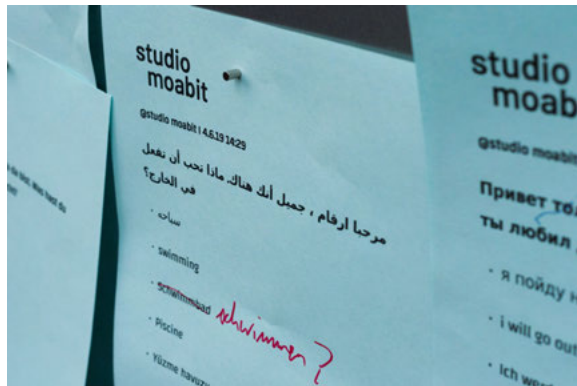 studio
moabit
@studio moabit | 4.6.19 14:29
مرحبا ارقام ، جميل أنك هناك. ماذا تحب أن تفعل
في الخارج؟
· سباحه
· swimming
· Schwimmbad schwimmen?
· Piscine
· Yüzme havuzu
studio
moab
@studio moabit
Привет
ты любил
· я пойду
· i will go out
· Ich